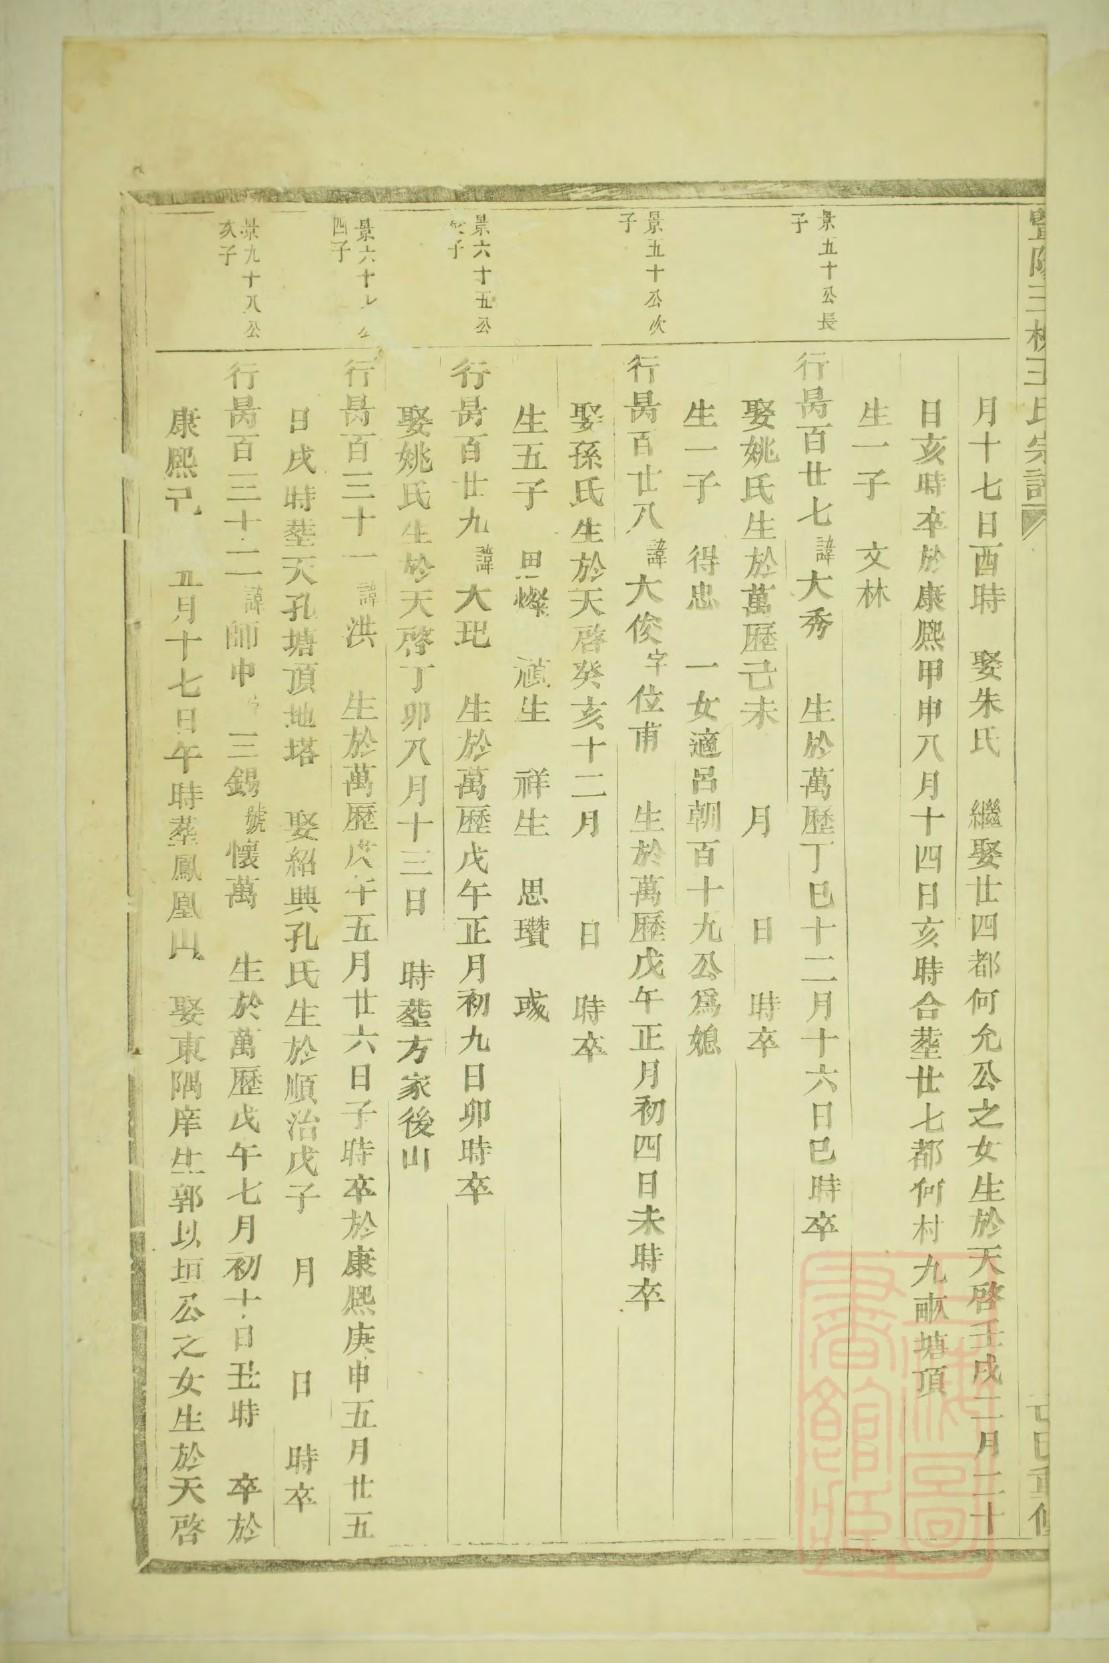 暨陽王氏宗譜
月十七日酉時 娶朱氏 繼娶廿四都何允公之女生於天啓壬戌二月二十
日亥時卒於康熈甲申八月十四日亥時合塟廿七都何村九畝塘頂
生一子 文林
景五十公長
子
行昺百廿七諱大秀 生於萬歷丁巳十二月十六日巳時卒
娶姚氏生於萬歷己未 月 日 時卒
生一子 得忠 一女適呂朝百十九公爲媳
景五十公次
子
行昺百廿八諱大俊字位甫 生於萬歷戊午正月初四日未時卒
娶孫氏生於天啓癸亥十二月 日 時卒
生五子 思燦 生 祥生 思瓚 彧
景六十五公
子
行昺百廿九諱大玘 生於萬歷戊午正月初九日卯時卒
娶姚氏生於天啓丁卯八月十三日 時塟方家後山
景六十 公
四子
行昺百三十一諱洪 生於萬歷戊午五月廿六日子時卒於康熈庚申五月廿五
日戌時塟天孔塘頂地塔 娶紹興孔氏生於順治戊子 月 日 時卒
景九十八公
次子
行昺百三十二諱師申 三錫號懷萬 生於萬歷戊午七月初十日丑時 卒於
康熈 五月十七日午時塟鳳凰山 娶東隅庠生郭以垣公之女生於天啓
重修
上海圖書館藏